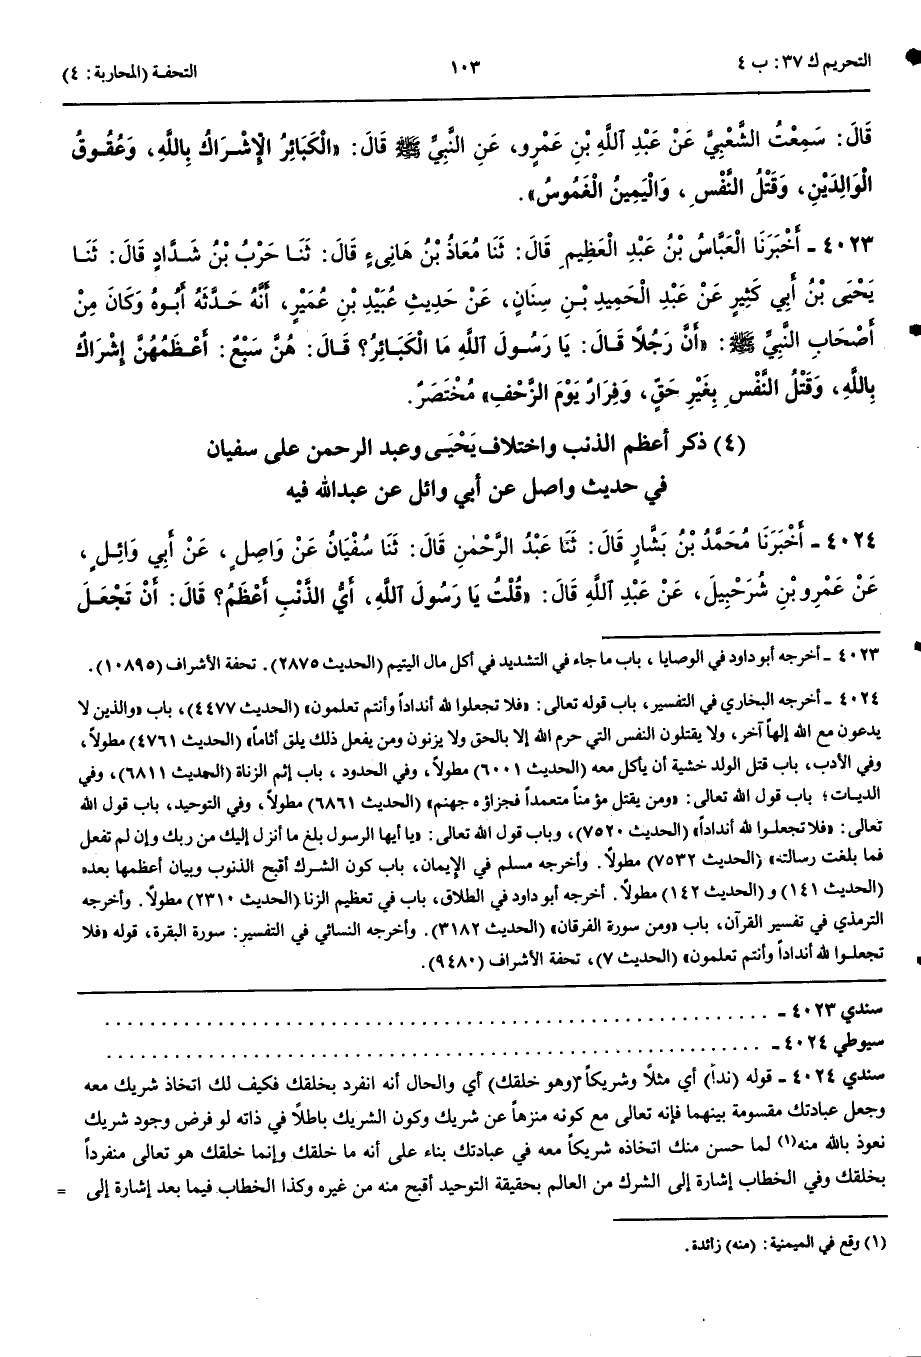 التحريم ك ٣٧: ب ٤
١٠٣
التحفة (المحاربة: ٤)
قَالَ: سَمِعْتُ الشَّعْبِيَّ عَنْ عَبْدِ اللَّهِ بْنِ عَمْرٍو، عَنِ النَّبِيِّ ﷺ قَالَ: «الْكَبَائِرُ الْإِشْرَاكُ بِاللَّهِ، وَعُقُوقُ
الْوَالِدَيْنِ، وَقَتْلُ النَّفْسِ، وَالْيَمِينُ الْغَمُوسُ».
٤٠٢٣ ـ أَخْبَرَنَا الْعَبَّاسُ بْنُ عَبْدِ الْعَظِيمِ قَالَ: ثَنَا مُعَاذُ بْنُ هَانِىءٍ قَالَ: ثَنَا حَرْبُ بْنُ شَدَّادٍ قَالَ: ثَنَا
يَحْيَى بْنُ أَبِي كَثِيرٍ عَنْ عَبْدِ الْحَمِيدِ بْنِ سِنَانٍ، عَنْ حَدِيثِ عُبَيْدِ بْنِ عُمَيْرٍ، أَنَّهُ حَدَّثَهُ أَبُوهُ وَكَانَ مِنْ
أَصْحَابِ النَّبِيِّ ﷺ: «أَنَّ رَجُلًا قَالَ: يَا رَسُولَ اللَّهِ مَا الْكَبَائِرُ؟ قَالَ: هُنَّ سَبْعٌ: أَعْظَمُهُنَّ إِشْرَاكٌ
بِاللَّهِ، وَقَتْلُ النَّفْسِ بِغَيْرِ حَقٍّ، وَفِرَارٌ يَوْمَ الزَّحْفِ» مُخْتَصَرٌ.
(٤) ذكر أعظم الذنب واختلاف يَحْيَى وعبد الرحمن على سفيان
في حديث واصل عن أبي وائل عن عبدالله فيه
٤٠٢٤ ـ أَخْبَرَنَا مُحَمَّدُ بْنُ بَشَّارٍ قَالَ: ثَنَا عَبْدُ الرَّحْمٰنِ قَالَ: ثَنَا سُفْيَانُ عَنْ وَاصِلٍ، عَنْ أَبِي وَائِلٍ،
عَنْ عَمْرِو بْنِ شُرَحْبِيلَ، عَنْ عَبْدِ اللَّهِ قَالَ: «قُلْتُ يَا رَسُولَ اللَّهِ، أَيُّ الذَّنْبِ أَعْظَمُ؟ قَالَ: أَنْ تَجْعَلَ
٤٠٢٣ ـ أخرجه أبو داود في الوصايا، باب ما جاء في التشديد في أكل مال اليتيم (الحديث ٢٨٧٥). تحفة الأشراف (١٠٨٩٥).
٤٠٢٤ ـ أخرجه البخاري في التفسير، باب قوله تعالى: «فلا تجعلوا لله أنداداً وأنتم تعلمون» (الحديث ٤٤٧٧)، باب «والذين لا
يدعون مع الله إلهاً آخر، ولا يقتلون النفس التي حرم الله إلا بالحق ولا يزنون ومن يفعل ذلك يلق أثاماً» (الحديث ٤٧٦١) مطولاً،
وفي الأدب، باب قتل الولد خشية أن يأكل معه (الحديث ٦٠٠١) مطولاً، وفي الحدود، باب إثم الزناة (الحديث ٦٨١١)، وفي
الديات؛ باب قول الله تعالى: «ومن يقتل مؤمناً متعمداً فجزاؤه جهنم» (الحديث ٦٨٦١) مطولاً، وفي التوحيد، باب قول الله
تعالى: «فلا تجعلوا لله أنداداً» (الحديث ٧٥٢٠)، وباب قول الله تعالى: «يا أيها الرسول بلغ ما أنزل إليك من ربك وإن لم تفعل
فما بلغت رسالته» (الحديث ٧٥٣٢) مطولاً. وأخرجه مسلم في الإيمان، باب كون الشرك أقبح الذنوب وبيان أعظمها بعده
(الحديث ١٤١) و (الحديث ١٤٢) مطولاً. أخرجه أبو داود في الطلاق، باب في تعظيم الزنا (الحديث ٢٣١٠) مطولاً. وأخرجه
الترمذي في تفسير القرآن، باب «ومن سورة الفرقان» (الحديث ٣١٨٢). وأخرجه النسائي في التفسير: سورة البقرة، قوله «فلا
تجعلوا لله أنداداً وأنتم تعلمون» (الحديث ٧)، تحفة الأشراف (٩٤٨٠).
سندي ٤٠٢٣ ـ ................................................
سيوطي ٤٠٢٤ ـ ................................................
سندي ٤٠٢٤ ـ قوله (نداً) أي مثلاً وشريكاً (وهو خلقك) أي والحال أنه انفرد بخلقك فكيف لك اتخاذ شريك معه
وجعل عبادتك مقسومة بينهما فإنه تعالى مع كونه منزهاً عن شريك وكون الشريك باطلاً في ذاته لو فرض وجود شريك
نعوذ بالله منه(١) لما حسن منك اتخاذه شريكاً معه في عبادتك بناء على أنه ما خلقك وإنما خلقك هو تعالى منفرداً
بخلقك وفي الخطاب إشارة إلى الشرك من العالم بحقيقة التوحيد أقبح منه من غيره وكذا الخطاب فيما بعد إشارة إلى =
(١) وقع في الميمنية: (منه) زائدة.